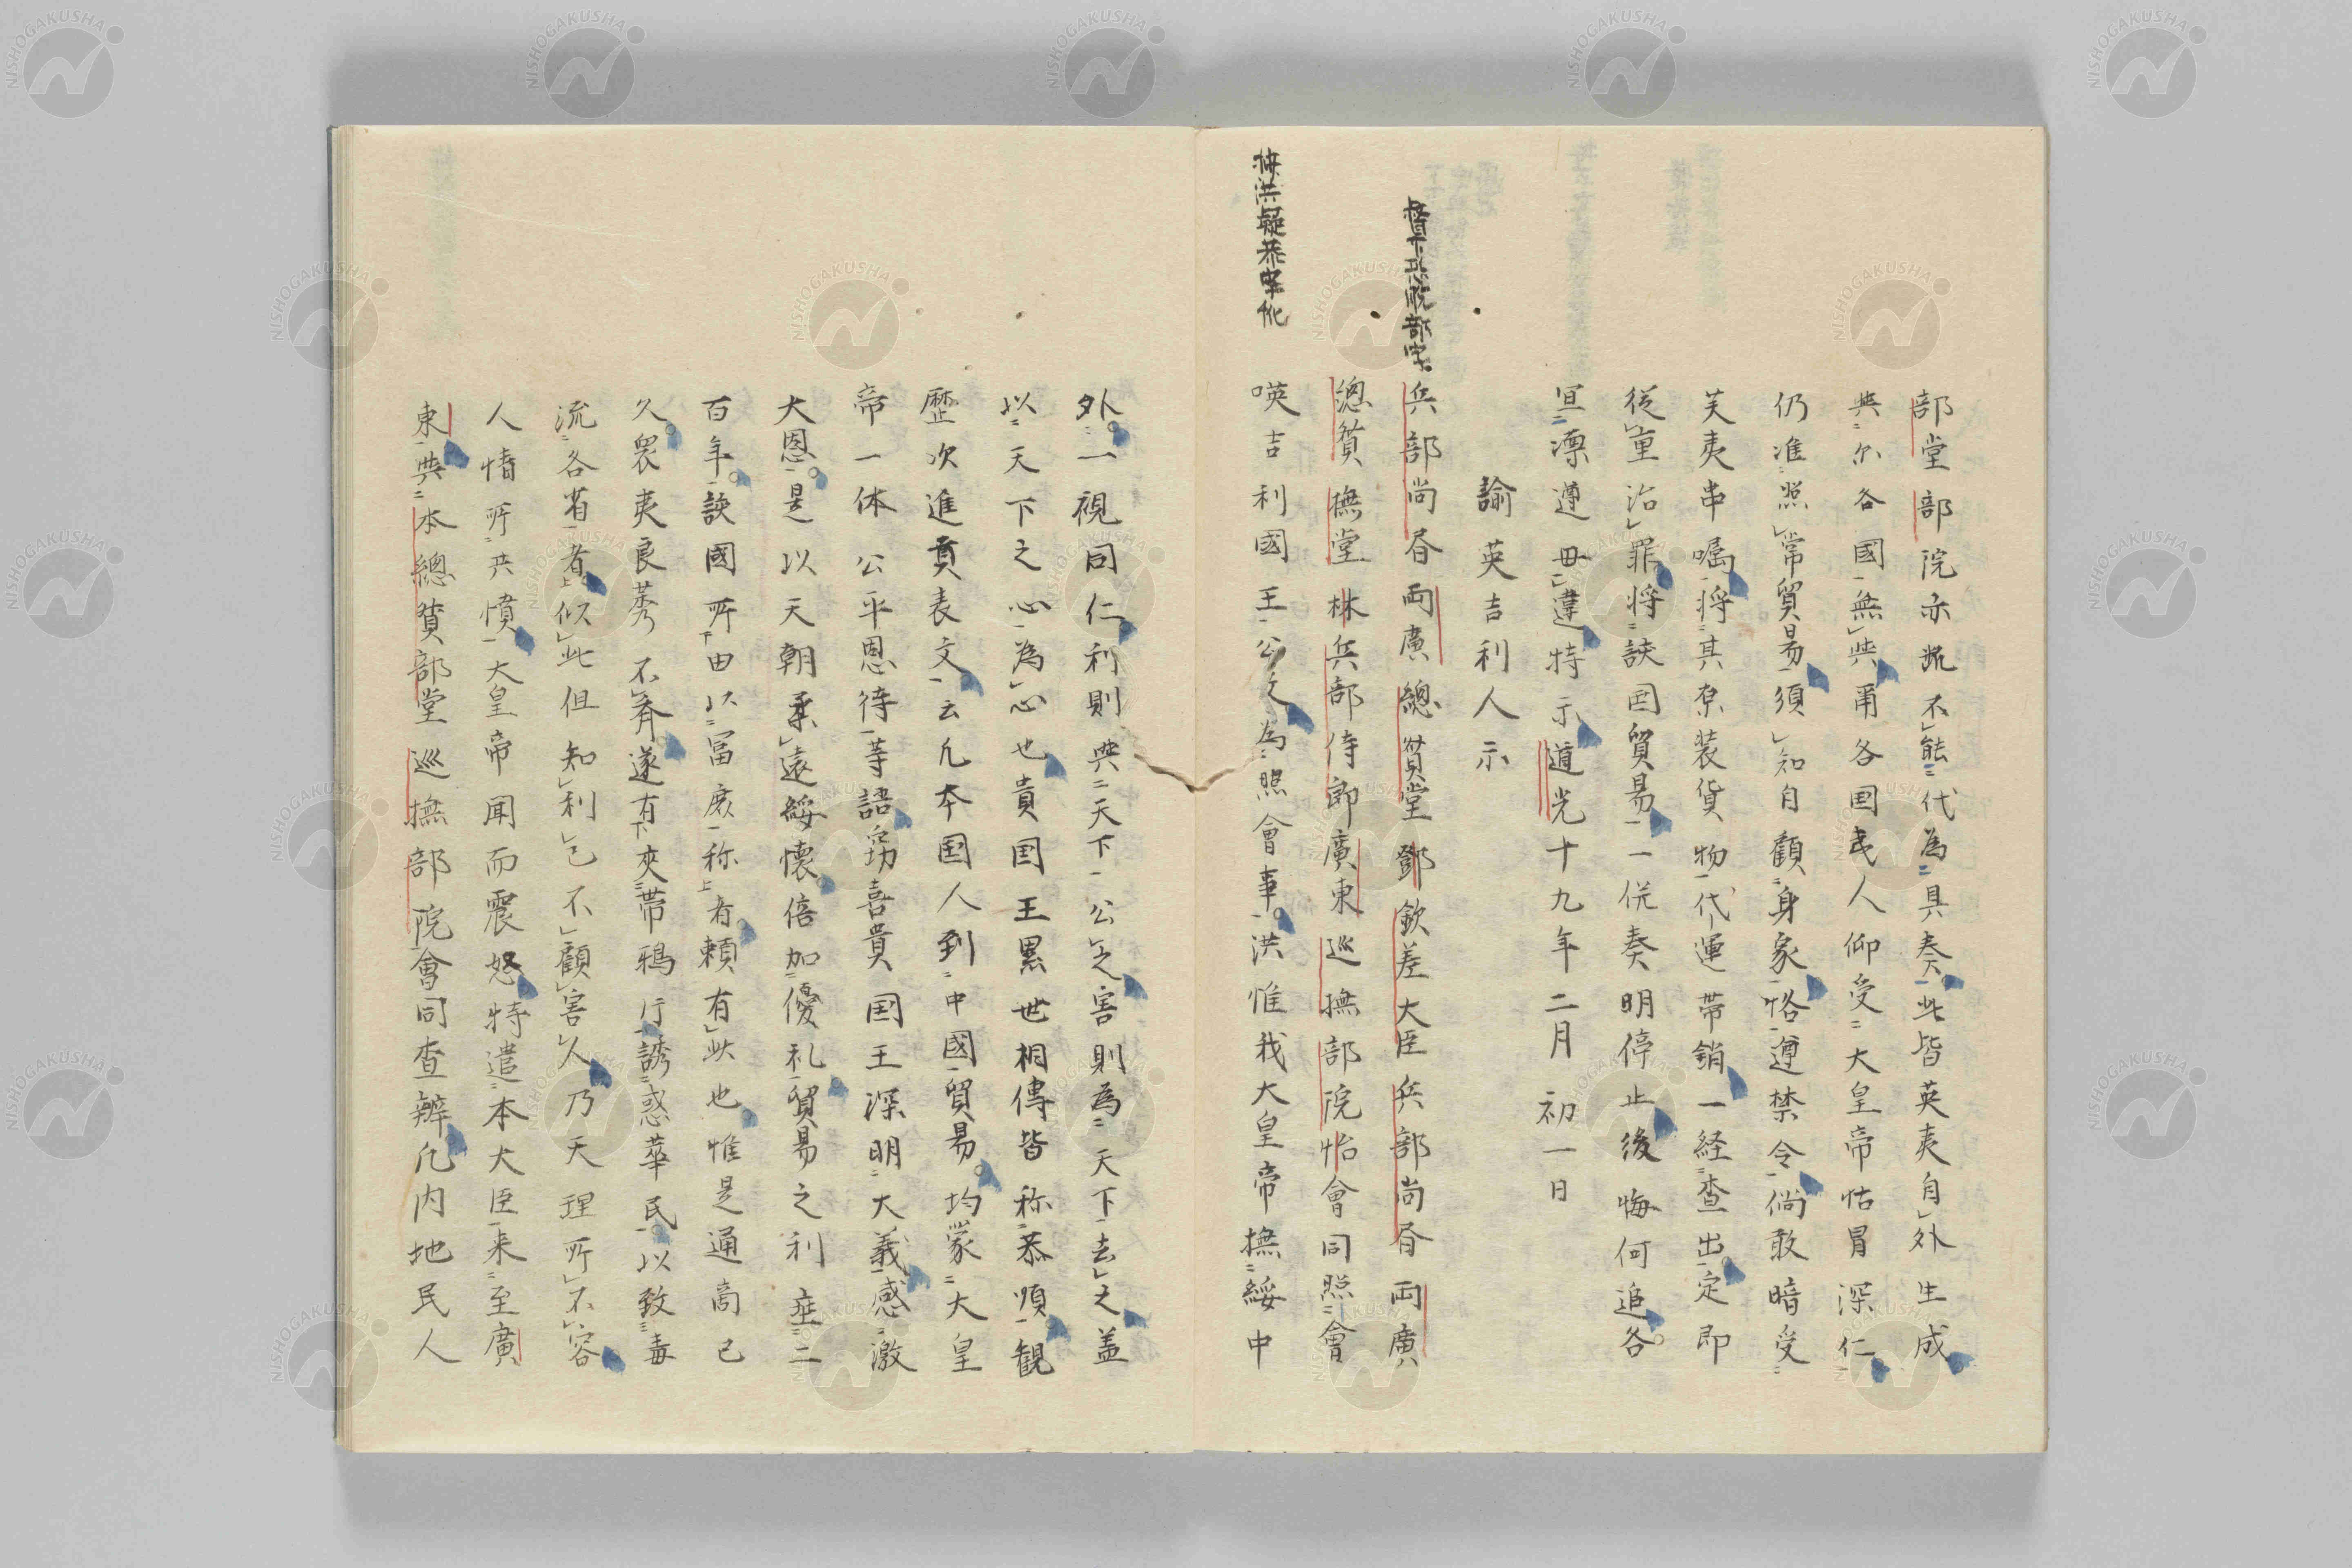 部堂部院亦斷不能代為具奏此皆英夷自外生成
與尔各國無與甭各国民人仰受大皇帝怙冒深仁
仍准照常貿易須知自顧身家恪遵禁令倘敢暗受
英夷串嘱將其原装貨物代運帯銷一経查出定即
従重治罪將該国貿易一併奏明停止後悔何追各
宜凜遵毋違特示道光十九年二月初一日
諭英吉利人示
督下恐脱部字
兵部尚㫺両廣總貭堂鄧欽差大臣兵部尚㫺両廣
總貭撫堂林兵部侍郎廣東巡撫部院怡會同照會
洪疑恭字訛
暎吉利國王公文為照會事洪惟我大皇帝撫綏中
外一視同仁利則與天下公之害則為天下去之盖
以天下之心為心也貴国王累世相傳皆称恭順観
歴次進貢表文云凡本国人到中國貿易均蒙大皇
帝一体公平恩待等語竊喜貴国王深明大義感激
大恩是以天朝柔遠綏懐倍加優礼貿易之利垂二
百年該國所由以冨庶称者頼有此也惟是通商已
久衆夷良莠不齊遂有夾帯鴉片誘惑華民以致毒
流各省者似此但知利己不顧害人乃天理所不容
人情所共憤大皇帝聞而震怒特遣本大臣来至廣
東與本總貭部堂巡撫部院會同查辦凡内地民人
NISHOGAKUSHA